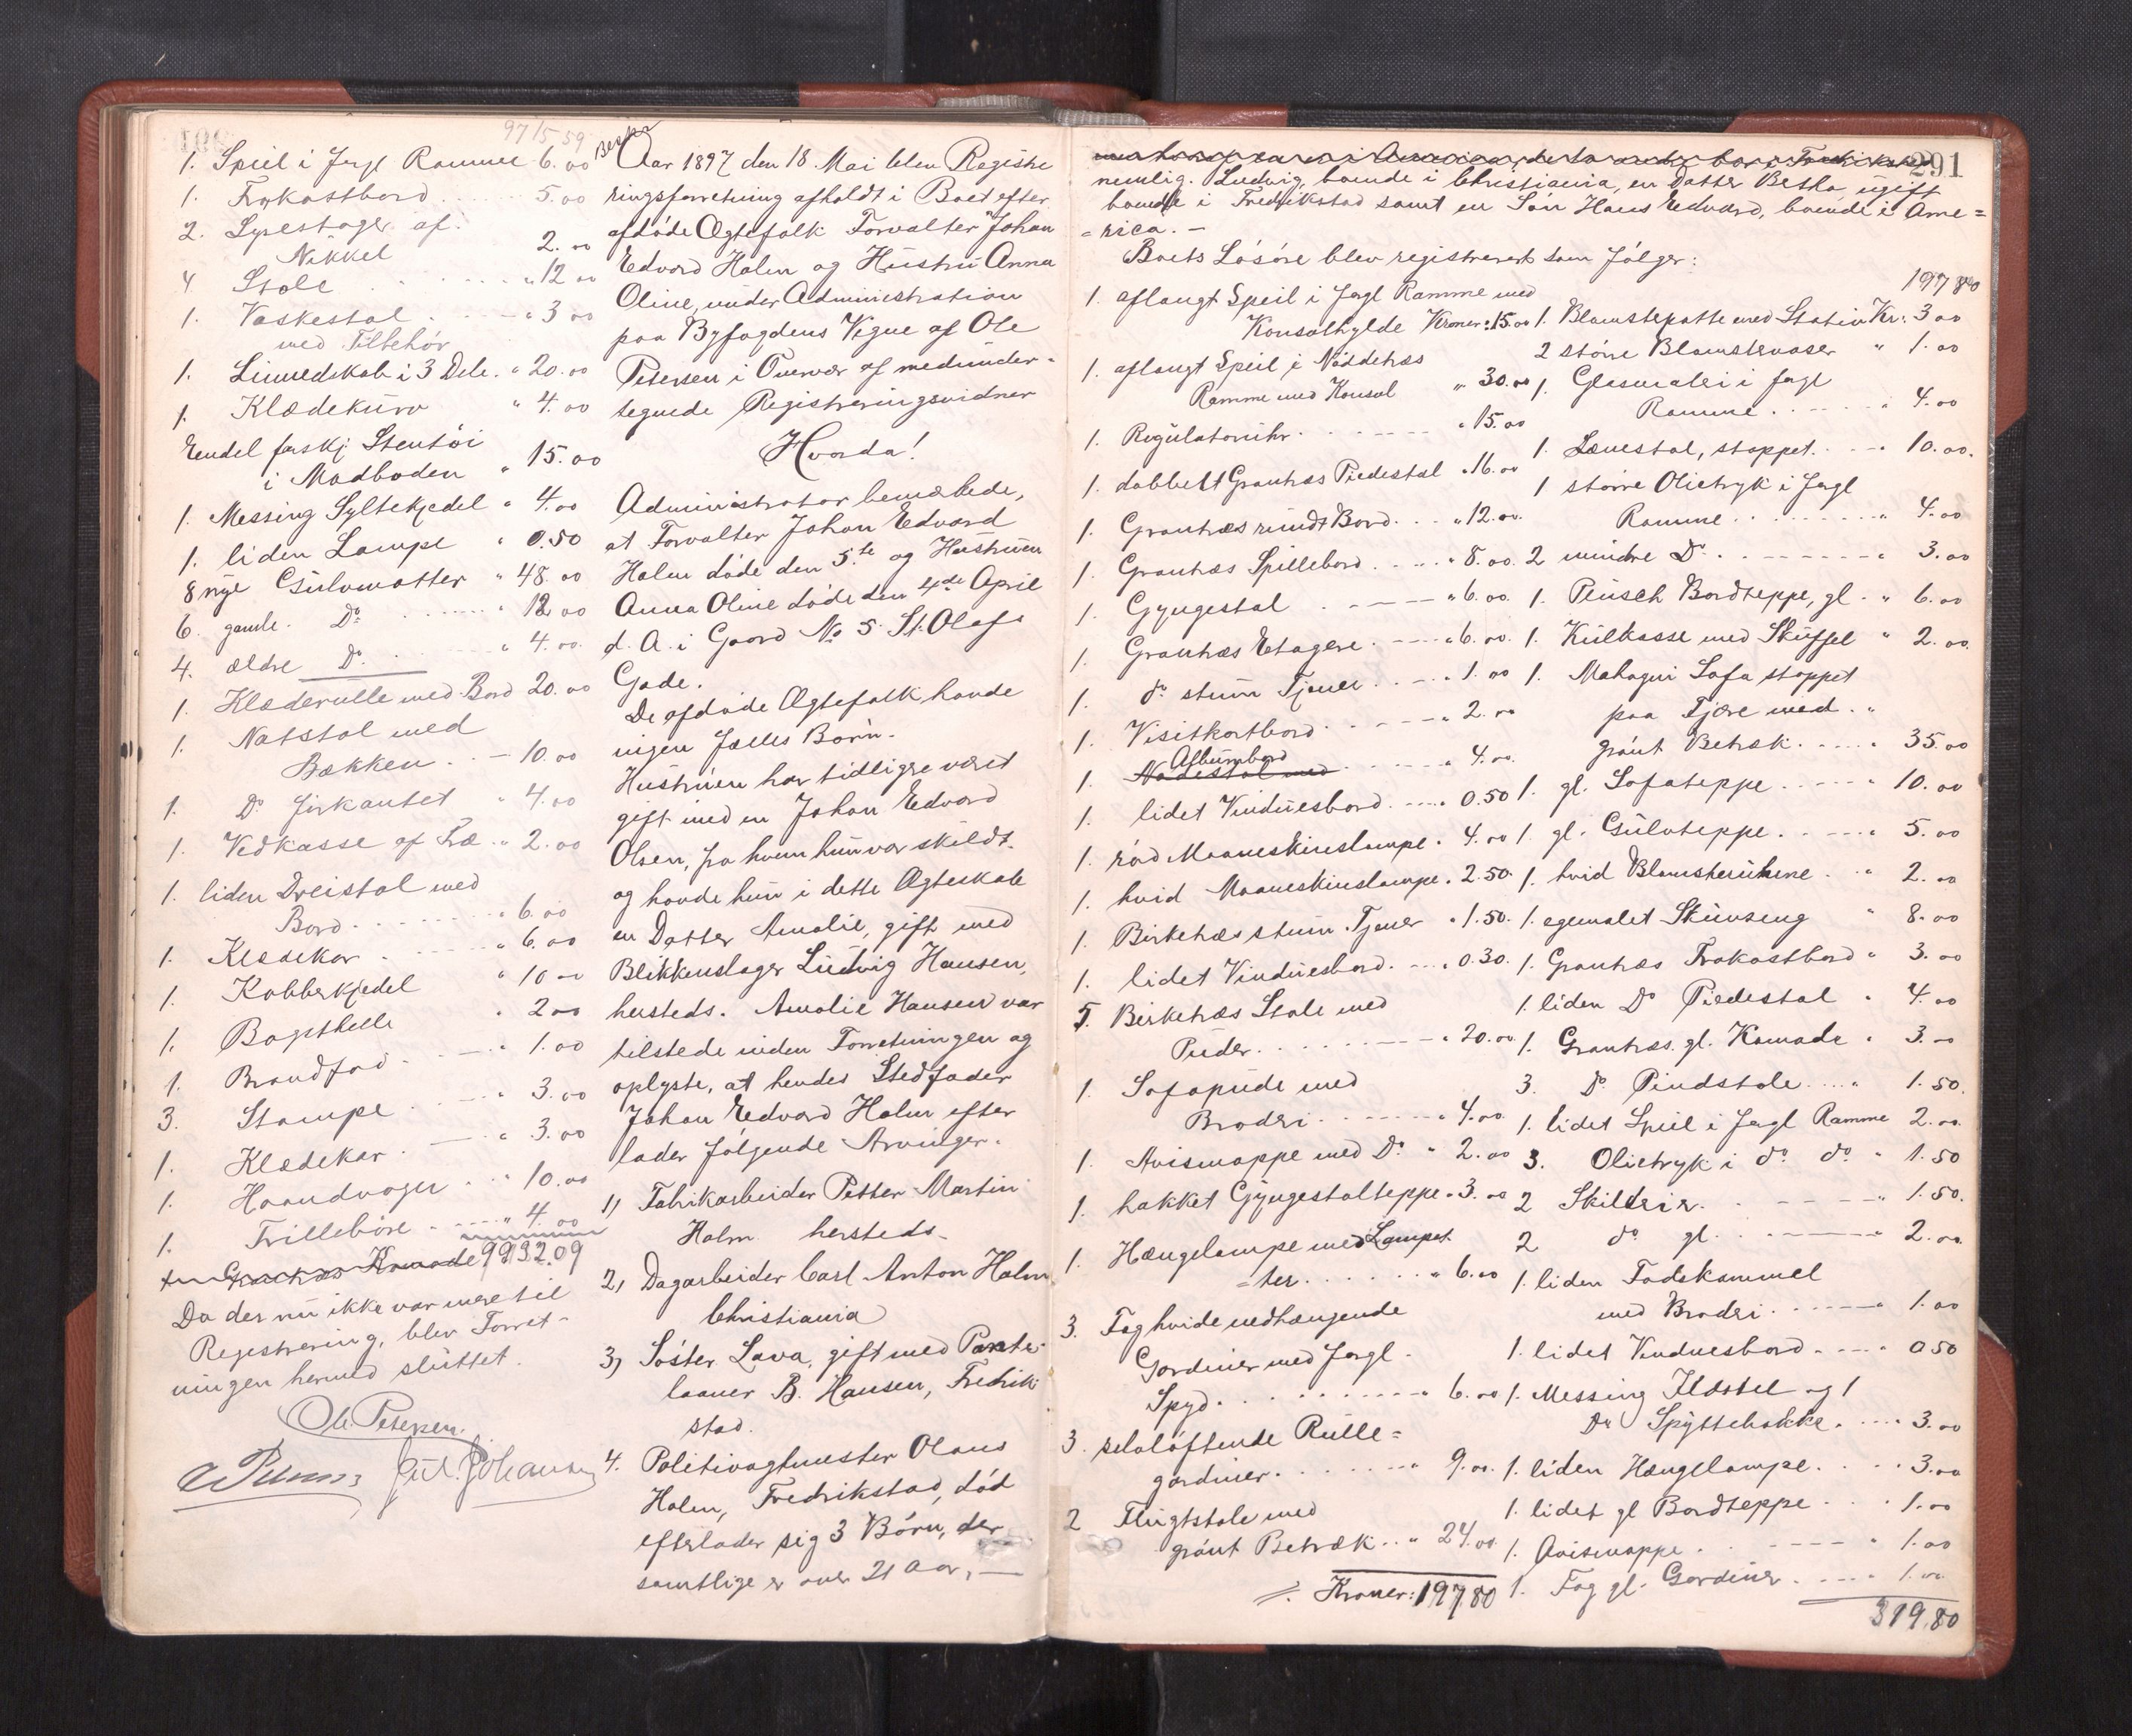 97 15/5 59
1. Speil i forgl Ramme 6.00
1. Frokostbord 5.00
2. Lysestager af
Nikkel 2.00
4 Stole " 12 00
1. Vaskestol " 3 00
med Tilbehör
1. Linnedskab i 3 Dele. " 20.00
1. Klædekurv " 4.00
Endel forskj. Stentöi
i Madboden " 15.00
1. Messing Syltekjedel " 4.00
1. liden Lampe " 0.50
8 nye Gulvmatter " 48.00
6. gamle. Do " 12 00
4. ældre Do. " 4.00
1. Klæderulle med Bord 20.00
1. Natstol med
Bækken. 10.00
1. Do firkantet " 4.00
1. Vedkasse af Træ " 2.00
1. liden Dreistol med
Bord " 6.00
1. Klædekar " 6.00
1. Kobberkjedel " 10 00
1. Bagsthelle " 2 00
1. Brandfad " 1.00
3. Stampe " 3.00
1. Klædekar " 3.00
1. Haandvogn " 10.00
1. Trilleböre " 4.00
932.09
Da der nu ikke var mere til
Registrering, blev Forret-
ningen hermed sluttet.
Ole Petersen
Jul. Johansen
Aar 1897 den 18. Mai blev Registre
ringsforretning afholdt i Boet efter
afdöde Ægtefolk Forvalter Johan
Edvard Holm og Hustru Anna
Oline, under Administration
paa Byfogdens Vegne af Ole
Petersen i Overvær af medunder-
tegnede Registreringsvidner
Hvorda!
Administrator bemærkede,
at Forvalter Johan Edvard
Holm döde den 5.te og Hustruen
Anna Oline döde den 4de April
d. A. i Gaard No 5 St. Olafs
Gade.
De afdöde Ægtefolk havde
ingen fælles Börn.
Hustruen har tidligere været
gift med en Johan Edvard
Olsen, fra hvem hun var skildt.
og havde hun i dette Ægteskab
en Datter Amalie, gift med
Blikkenslager Ludvig Hansen,
hersteds. Amalie Hansen var
tilstede under Forretningen og
oplyste, at hendes Stedfader
Johan Edvard Holm efter
lader fölgende Arvinger.
1) Fabrikarbeider Petter Martin
Holm hersteds.
2) Dagarbeider Carl Anton Holm
Christiania
3) Söster Lava, gift med Pante-
laaner B. Hansen, Fredrik
stad.
4. Politivagtmester Olaus
Holm, Fredrikstad, död
efterlader sig 3 Börn, der
samtlige er over 21 Aar, —
291
nemlig. Ludvig, boende i Christiania, en Datter Betha, ugift
boende i Fredrikstad samt en Sön Hans Edvard, boende i Ame=
=rica. —
Boets Lösöre blev registreret som fölger:
1. aflangt Speil i forgl Ramme med
Konsolhylde Kroner: 15.00
1. aflangt Speil i Nöddetræs
Ramme med Konsol " 30.00
1. Regulatoruhr " 15.00
1. dobbelt Grantræs Piedestal " 16.00
1. Grantræs rundt Bord " 12.00
1. Grantræs Spillebord " 8.00
1. Gyngestol " 6.00
1. Grantræs Etagere " 6.00
1. do stum Tjener " 1.00
1. Visitkortbord " 2.00
1. Albumbord " 4.00
1. lidet Vinduesbord " 0.50
1. röd Maaneskinslampe " 4.00
1. hvid Maaneskinslampe " 2.50
1. Birketræs stum Tjener " 1.50
1. lidet Vinduesbord " 0.30
5. Birketræs Stole med
Puder " 20.00
1. Sofapude med
Broderi " 4.00
1. Avismappe med Do " 2.00
1. hakket Gyngestolteppe " 3.00
1. Hængelampe med Lampet
=ter " 6.00
3. Fag hvide nedhængende
Gardiner med forgl.
Spyd " 6.00
3. selvlöftende Rulle=
gardiner " 9.00
2 Flugtstole med
grönt Betræk " 24.00
Kroner: 197.80
197 80
1. Blomsterpotte med Stativ Kr. 3 00
2 större Blomstervaser " 1.00
1. Glasmaleri i forgl
Ramme " 4.00
1. Lænestol, stoppet " 10.00
1 större Olietryk i forgl
Ramme " 4.00
2 mindre Do " 3.00
1. Plüsch Bordteppe, gl. " 6.00
1. Kulkasse med Skuffel " 2.00
1. Mahogni Sofa stoppet
paa Fjære med "
grönt Betræk " 35.00
1. gl. Sofateppe " 10.00
1. gl. Gulvteppe " 5.00
1. hvid Blomsterurne " 2.00
1. egemalet Skuvseng " 8.00
1. Grantræs Frokostbord " 3.00
1. liden Do Piedestal " 4.00
1. Grantræs gl. Komode " 3.00
3. Do Pindstole " 1.50
1. lidet Speil i forgl Ramme 2.00
3. Olietryk i do do " 1.50
2 Skilderier " 1.50
2 do gl. " 2.00
1. liden Fodskammel
med Broderi " 1.00
1. lidet Vinduesbord " 0 50
1. Messing Ildstel og 1
Do Spyttebakke " 3.00
1. liden Hængelampe " 3.00
1. lidet gl Bordteppe " 1.00
1. Avismappe " 1.00
1. Fag gl. Gardiner " 1.00
319.80